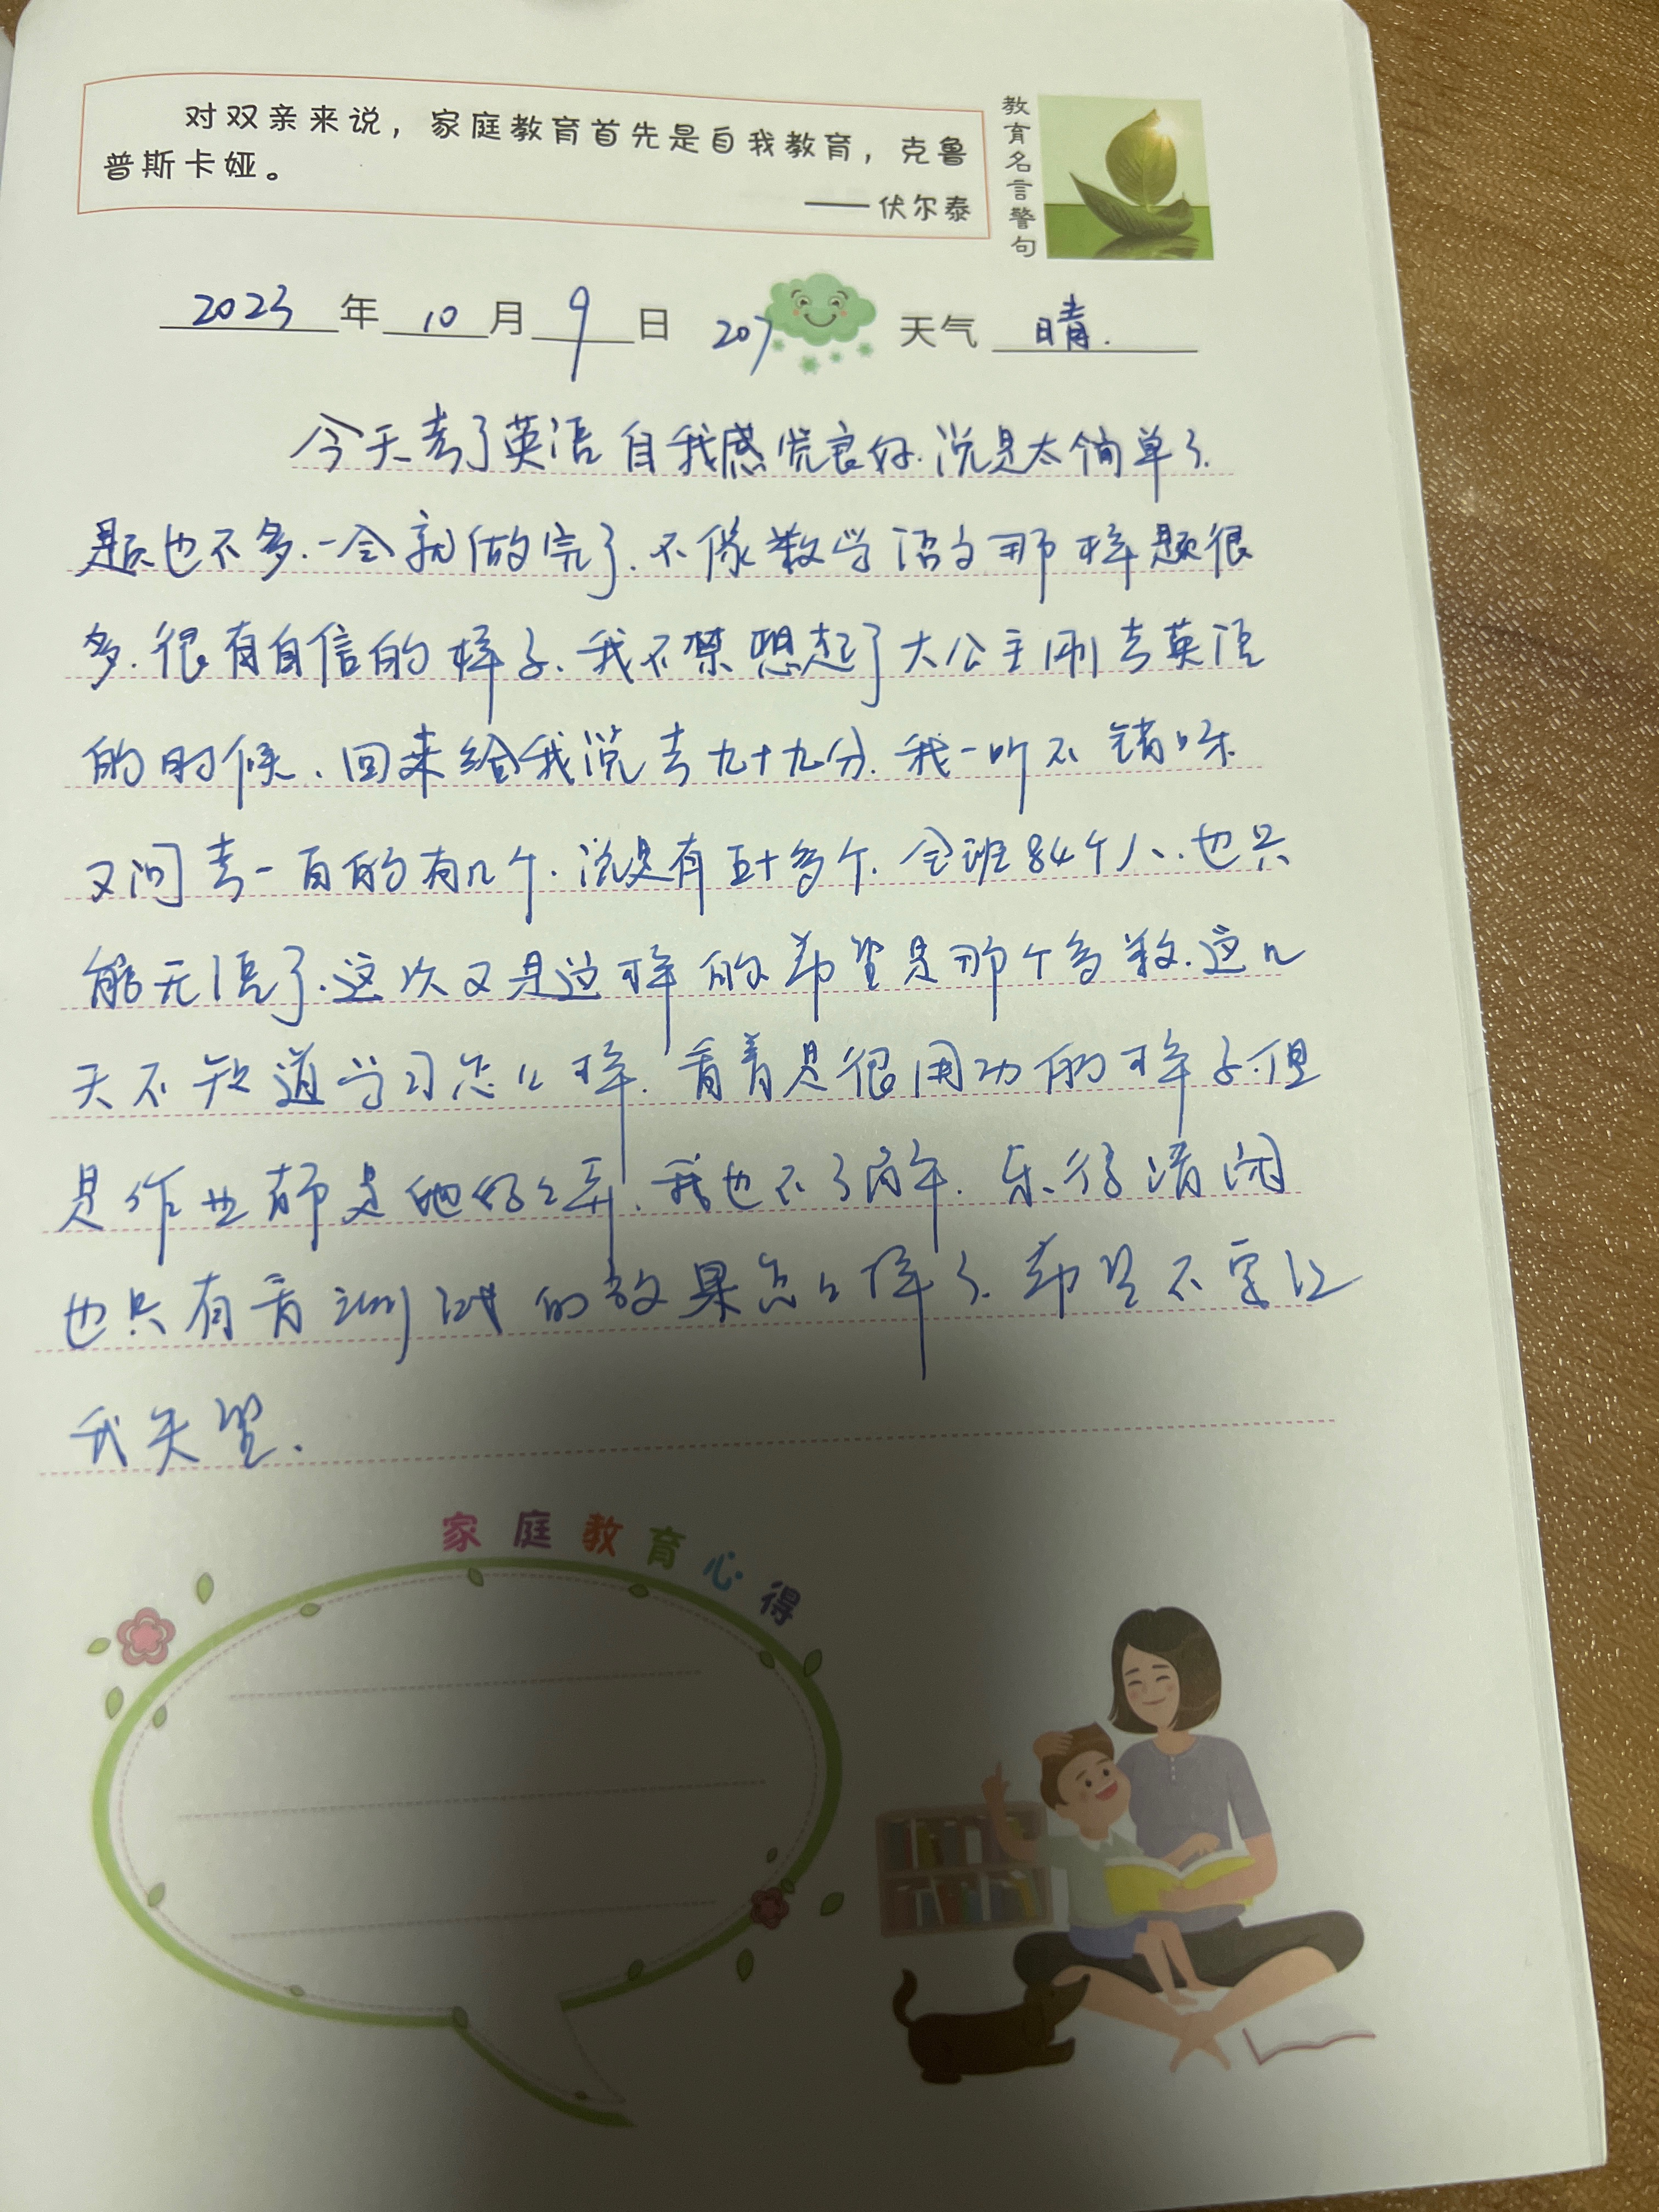 对双亲来说，家庭教育首先是自我教育，克鲁
普斯卡娅。
——伏尔泰
教育名言警句
2023年10月9日 207 天气 晴.
今天考了英语自我感觉良好.说是太简单了.
题也不多.一会就做完了.不像数学语文那样题很
多.很有自信的样子.我不禁想起了大公主刚考英语
的时候.回来给我说考九十九分.我一听不错呀
又问考一百的有几个.说是有五十多个.全班84个人.也只
能无语了.这次又是这样的希望是那个多数.这几
天不知道学习怎么样.看着是很用功的样子.但
是作业都是她妈么弄.我也不了解.乐得清闲
也只有看测试的效果怎么样了.希望不要让
我失望.
家庭教育心得